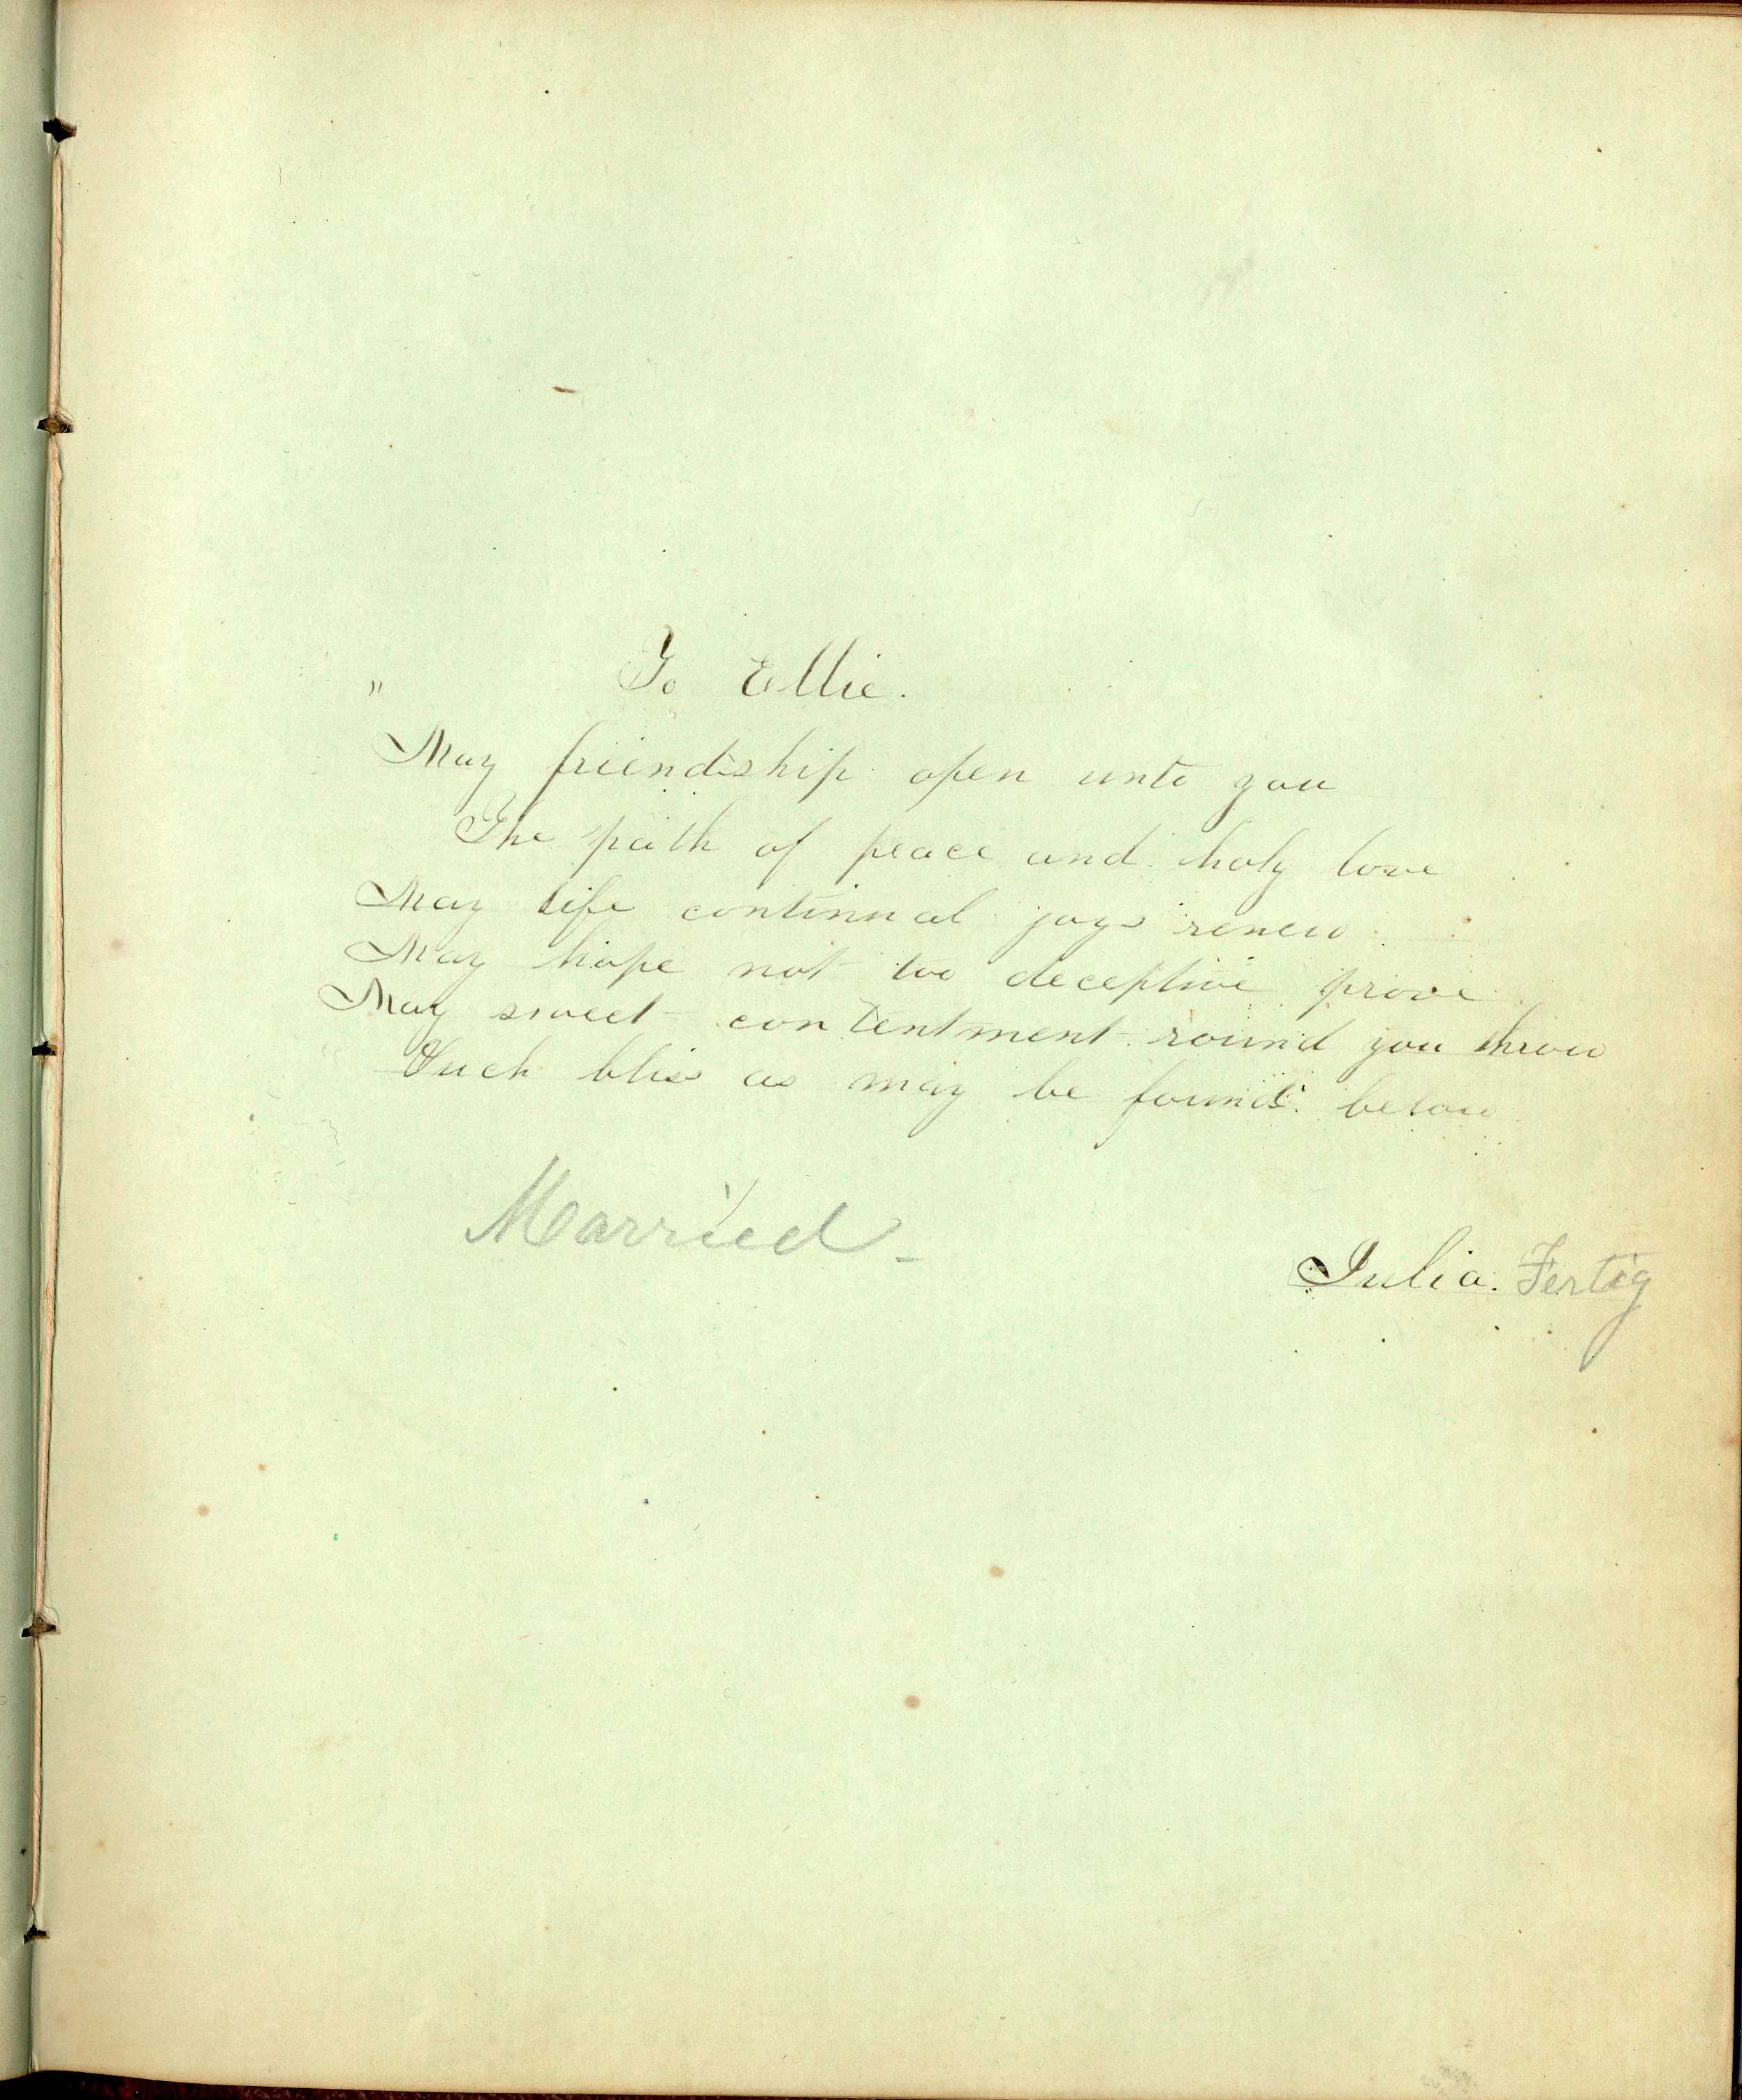 " To Ellie.
May friendship open unto you
The path of peace and holy love
May life continual joys renew
May hope not too deceptive prove
May sweet contentment round you throw
Such bliss as may be found below
Married -
Julia. Fertig